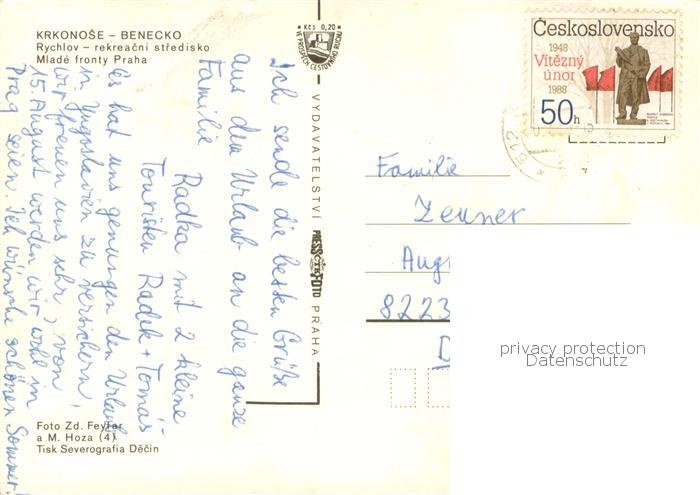 KRKONOŠE – BENECKO
Rychlov – rekreační středisko
Mladé fronty Praha
Kčs 0,20
VE PROSPĚCH CESTOVNÍHO RUCHU
Československo
1948
Vítězný
únor
1988
50h
Ich sende die besten Grüße
aus dem Urlaub an die ganze
Familie
Radka mit 2 kleine
Touristen Radek + Tomáš
Es hat uns genungen den Urlaub
in Jugoslavien zu versichern,
wir freuen uns sehr, von
15. August werden wir wohl in
Prag seien. Ich wünsche schönen Sommer!
VYDAVATELSTVÍ PRESSFOTO PRAHA
Familie
Zeuner
Aug
8223
privacy protection
Datenschutz
Foto Zd. Feyfar
a M. Hoza (4)
Tisk Severografia Děčín